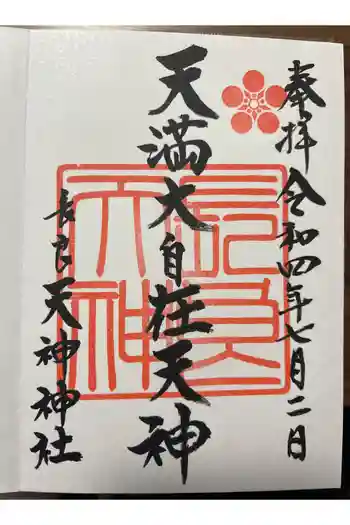 奉拝 令和四年七月二日
天満大自在天神
長良天神神社
長良
天神